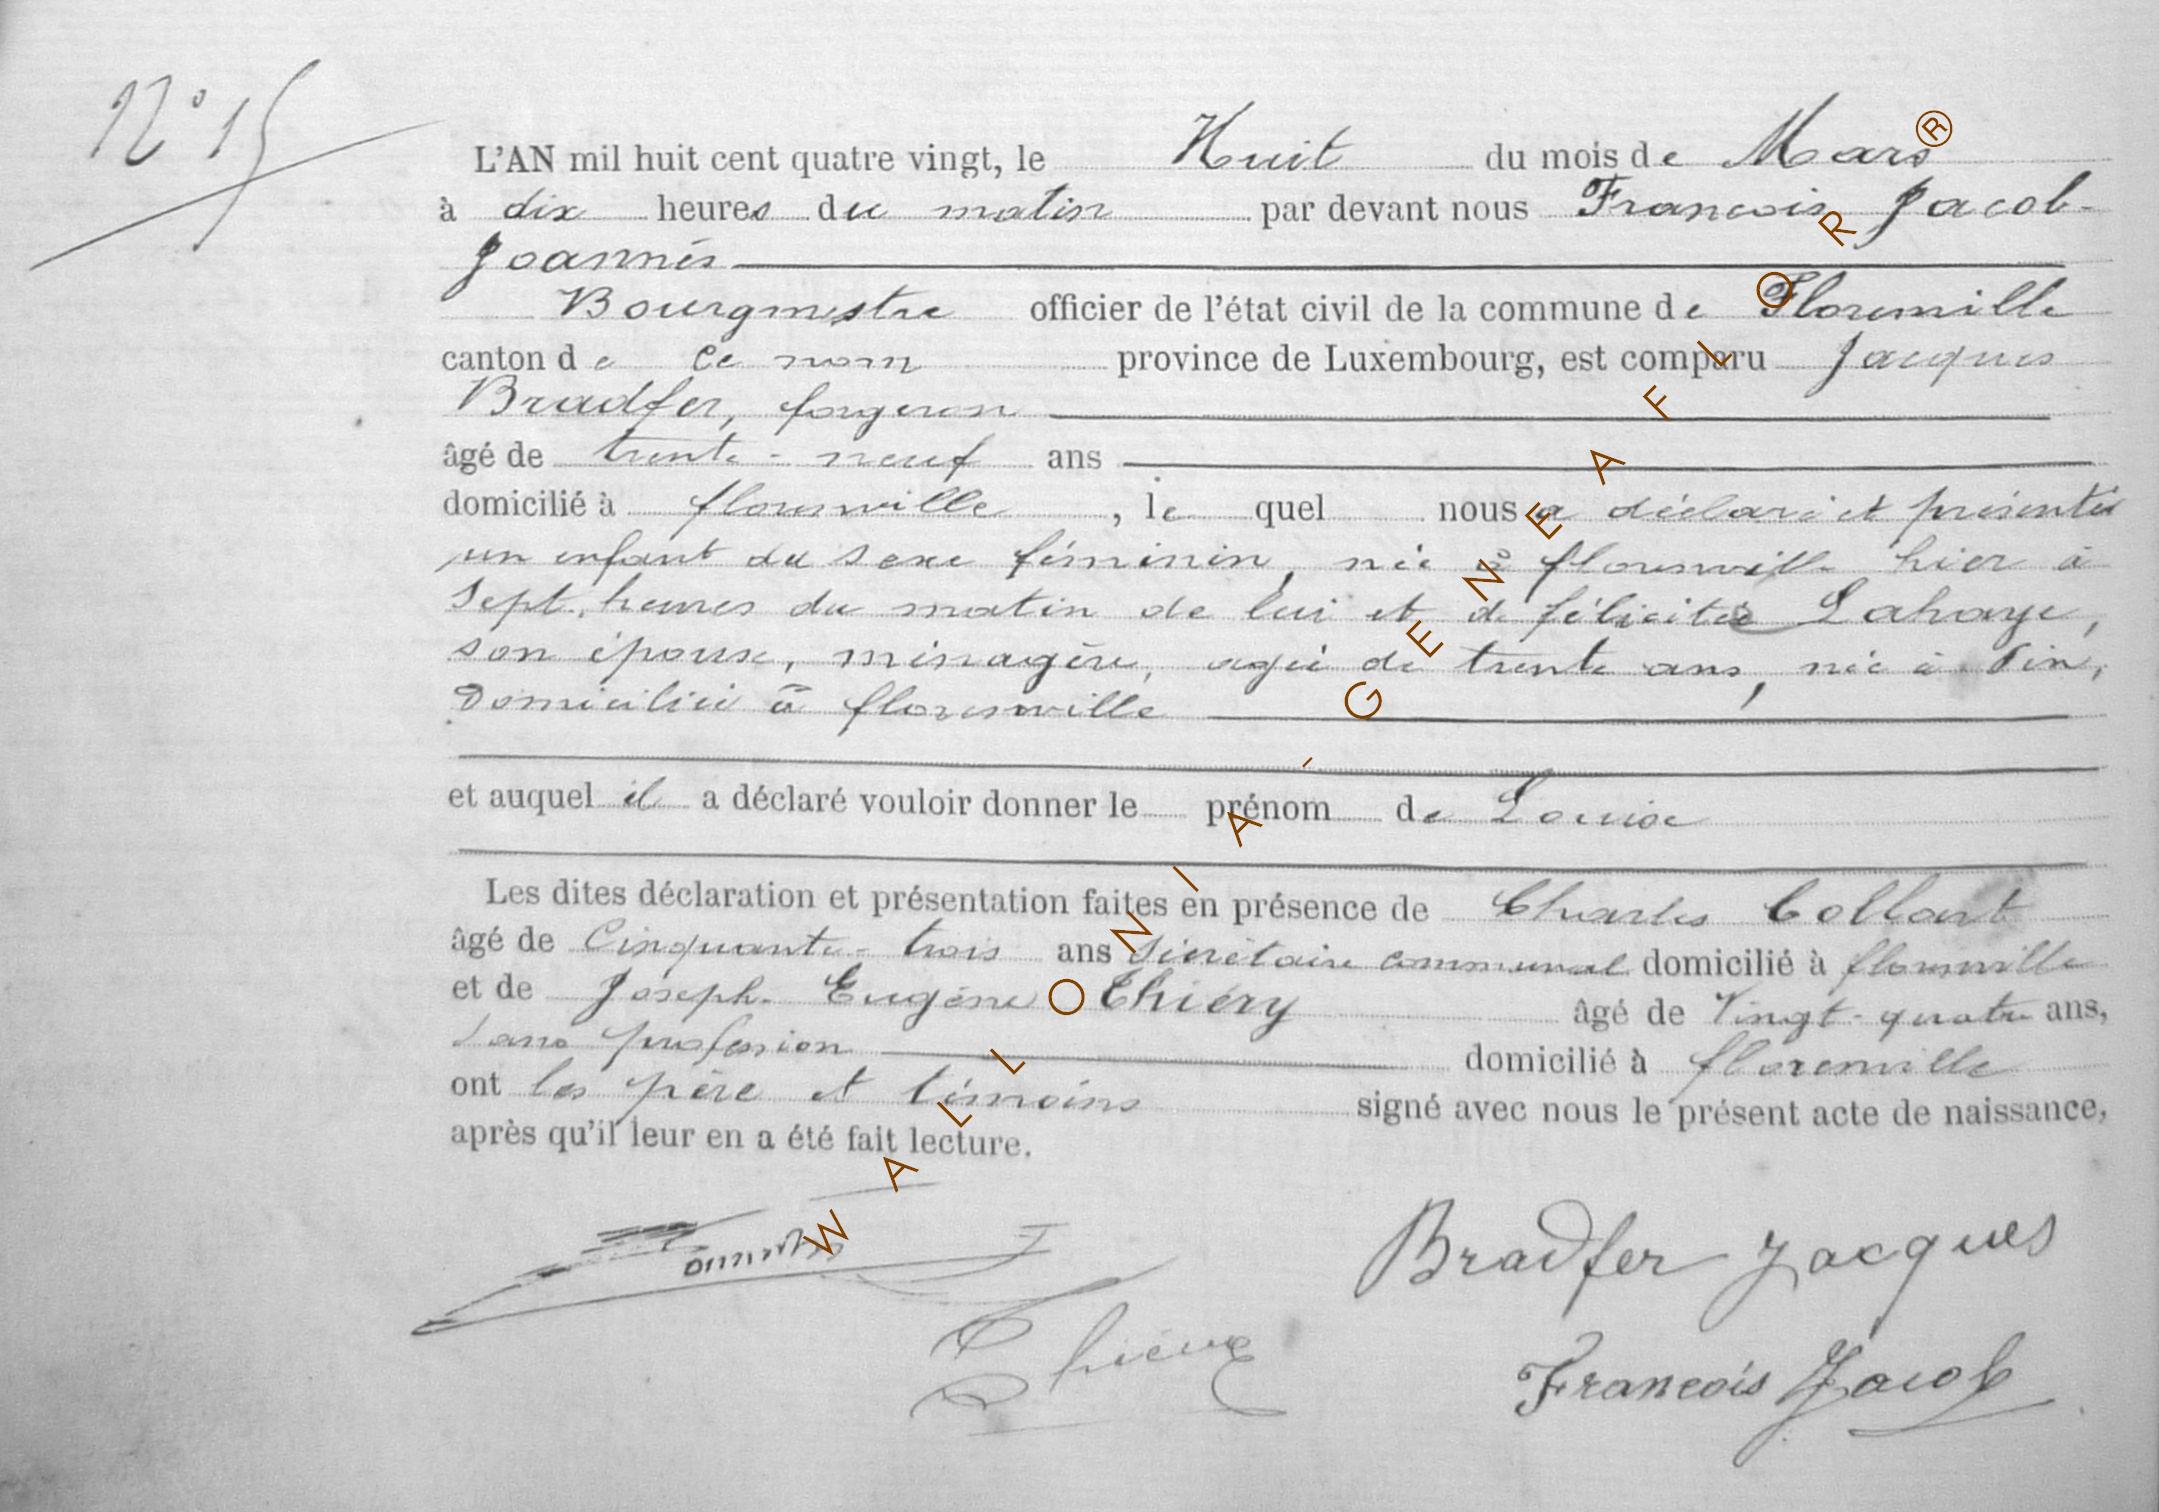 N° 15
L'AN mil huit cent quatre vingt, le Huit du mois de Mars
à dix heures du matin par devant nous François Jacob-
Joannès
Bourgmestre officier de l'état civil de la commune de Florenville
canton de ce nom province de Luxembourg, est comparu Jacques
Bradfer, forgeron
âgé de trente-neuf ans
domicilié à florenville, le quel nous a déclaré et présenté
un enfant du sexe féminin, née à florenville hier à
sept heures du matin de lui et de félicitée Lahaye,
son épouse, ménagère, agée de trente ans, née à Pin,
Domiciliée à florenville
et auquel il a déclaré vouloir donner le prénom de Louise
Les dites déclaration et présentation faites en présence de Charles Collart
âgé de Cinquante-trois ans Sécrétaire communal domicilié à florenville
et de Joseph Eugène Thiéry âgé de Vingt-quatre ans,
sans profession domicilié à florenville
ont les père et témoins signé avec nous le présent acte de naissance,
après qu'il leur en a été fait lecture.
Bradfer Jacques
Thiéry
François Jacob
WALLONIA - GENEAFLOR®